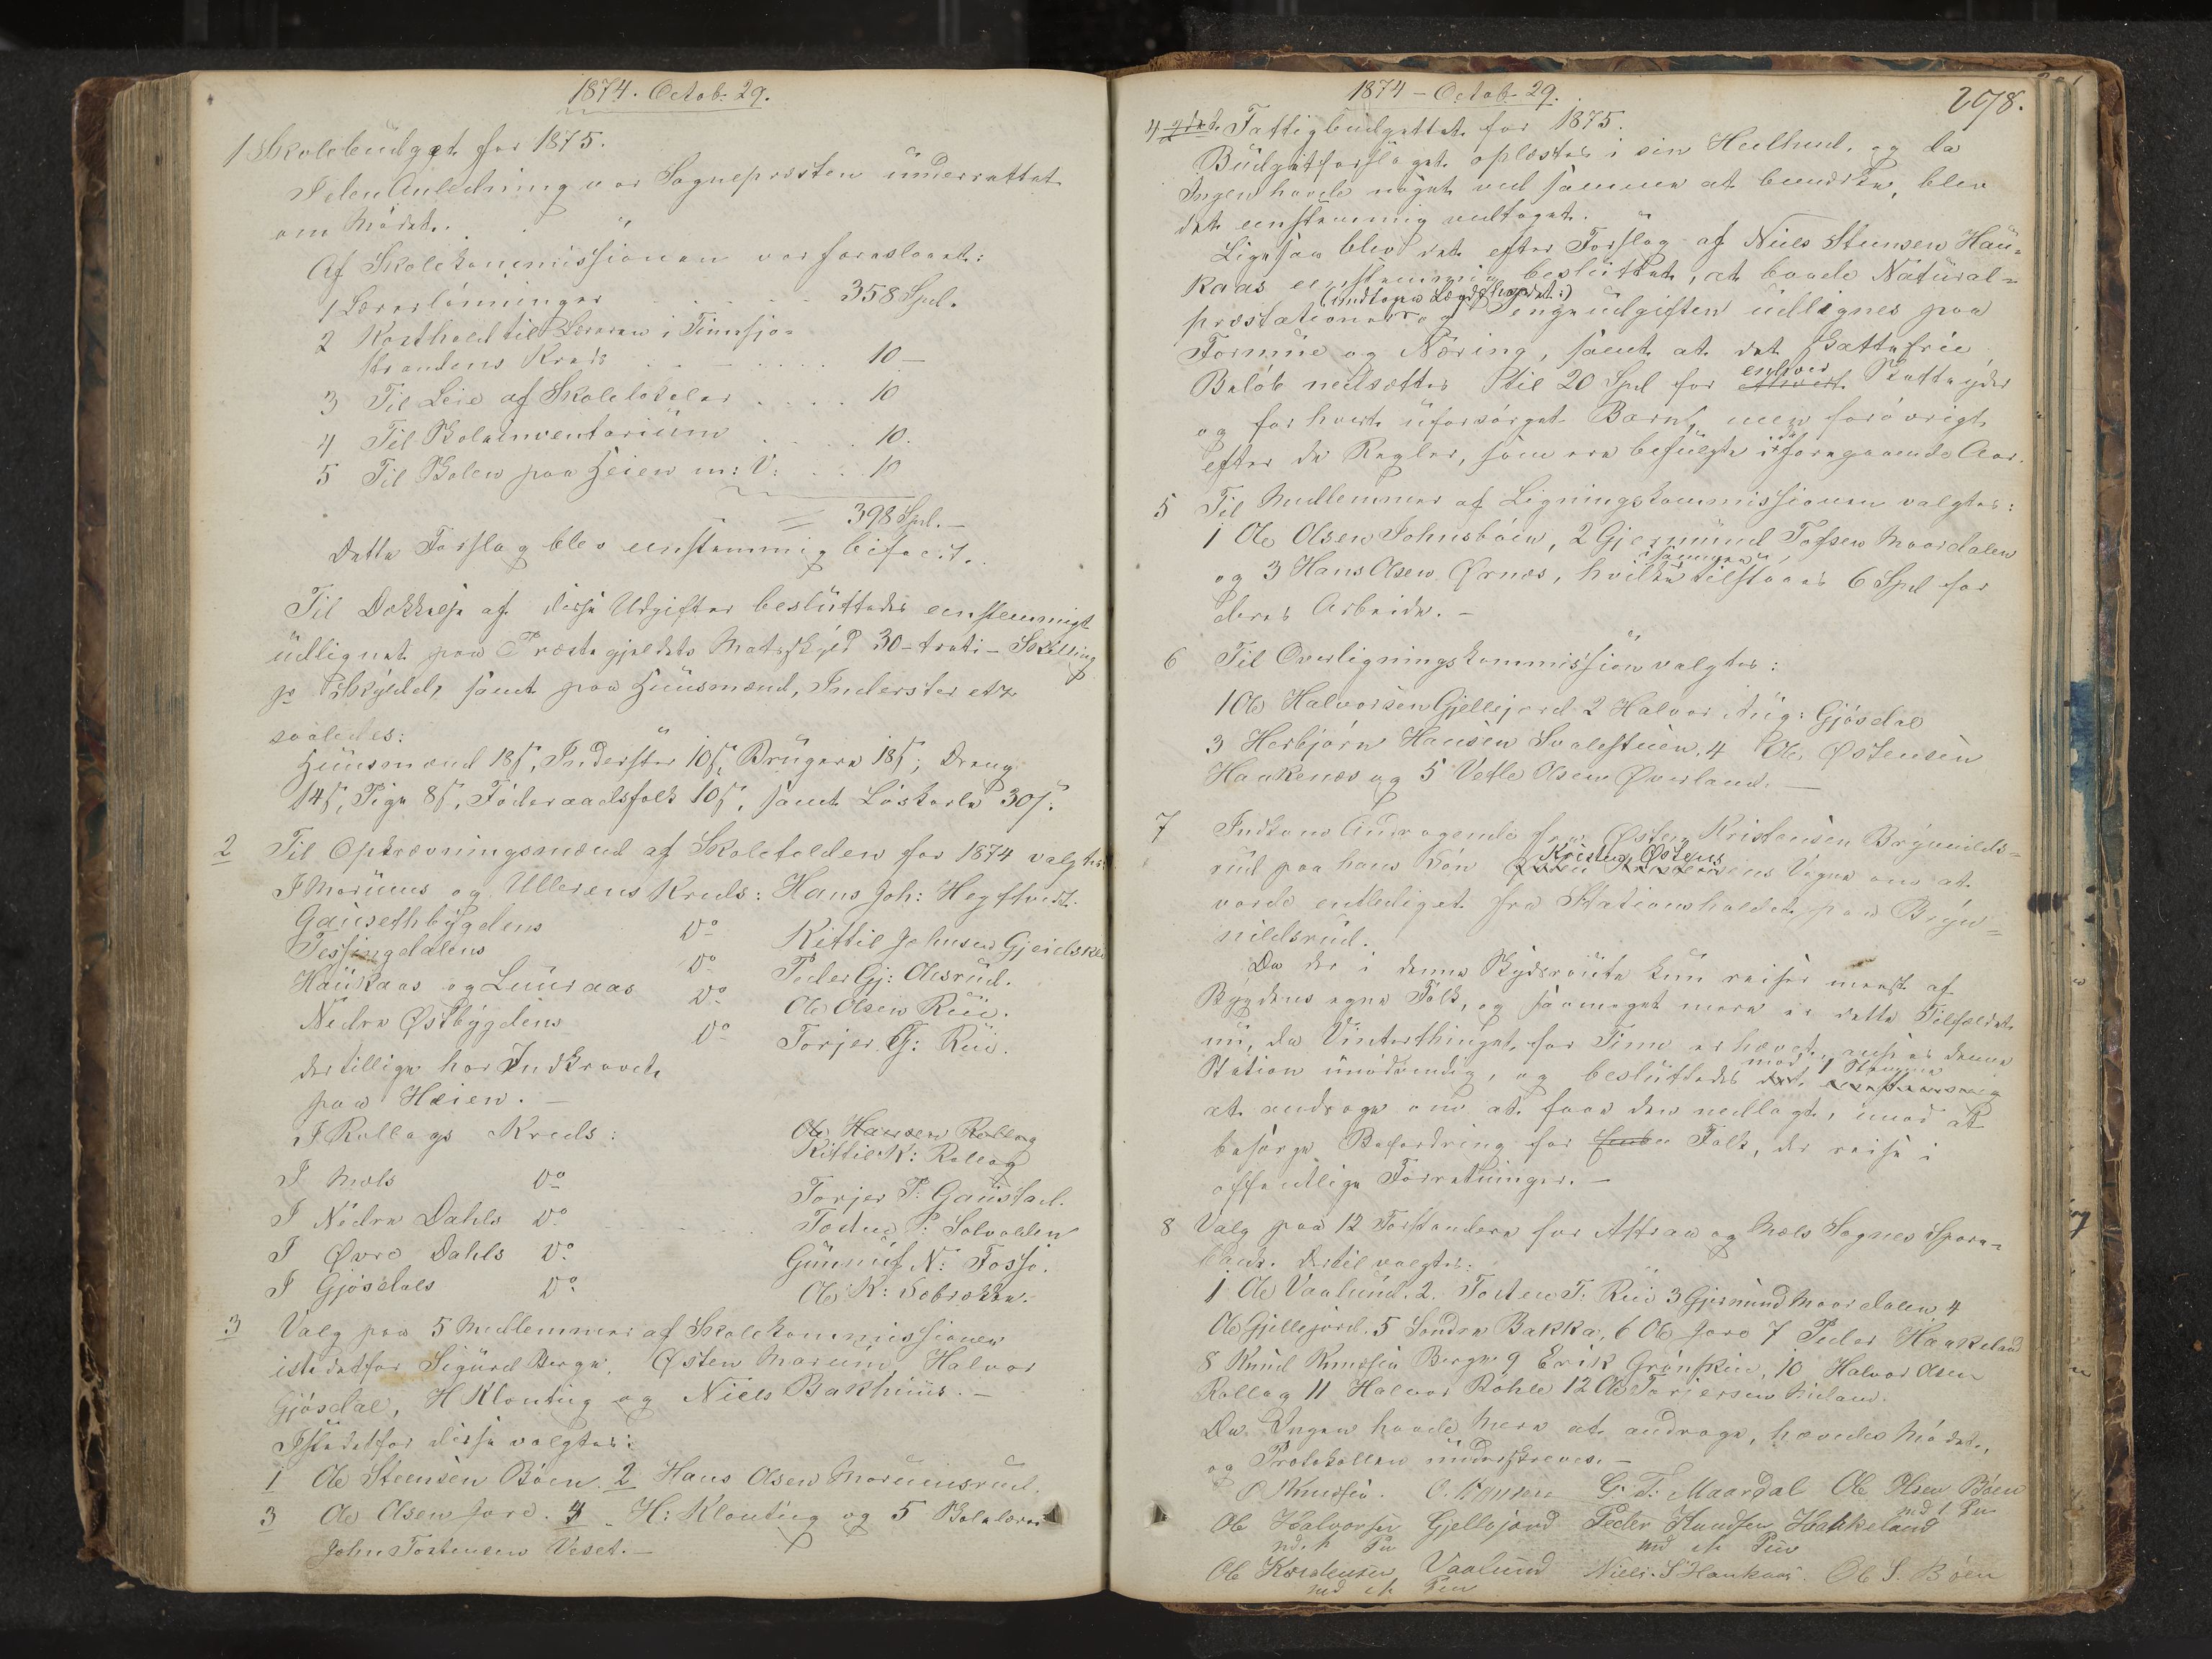 1874. Octob. 29.
1 Skolebudget for 1875.
I den Anledning var Sognepresten underrettet
om Mødet.
Af Skolekommissionen var foreslaaet:
1 Lærerlønninger 358 Spd.
2 Kosthold til Læreren i Tinnsjø-
strandens Kreds 10 –
3 Til Leie af Skolelokaler 10
4 Til Skoleinventarium 10.
5 Til Skolen paa Heien m: V: 10
398 Spd. –
Dette Forslag blev eenstemmig bifaldt.
Til Dækkelse af disse Udgifter besluttedes eenstemmigt
udlignet paa Præstegjeldets Matrskyld 30 – treti – Skilling
pr Skylddl, samt paa Huusmænd, Inderster etc
saaledes:
Huusmænd 18 s, Inderster 10 s, Brugere 18 s; Dreng
14 s, Pige 8 s, Føderaadsfolk 10 s, samt Løskarle 30 s.
2 Til Opkrævningsmænd af Skoletolden for 1874 valgtes:
I Marums og Ullerens Kreds: Hans Joh: Hegstvedt.
Gausethbygdens Do Kittil Johnsen Gjeidsk
Tessingdalens Do Peder Gj: Olesrud.
Haukaas og Luuraas Do Ole Olsen Rui.
Nedre Østbygdens Do Torjer G: Rui.
der tillige har Indkrævet
paa Heien. –
I Rollags Kreds: Ole Hansen Rollag
Kittil K: Rollag
I Mæls Do Torjer P: Gaustad.
I Nedre Dahls Do P: Solvolden
I Øvre Dahls Do Gunnuf N: Fosso.
I Gjøsdals Do Ole K: Sebrekke.
3 Valg paa 5 Medlemmer af Skolekommissionen
istedetfor Sigurd Berge, Østen Marum, Halvor
Gjøsdal, H Klonteig og Niels Bakhuus. –
Istedetfor disse valgtes:
1 Ole Steensen Bøen. 2 Hans Olsen Maruumsrud.
3 Ole Olsen Jore. 4 H: Klonteig og 5 Skolelærer
John Torstensen Veset. –
1874 – Octob. 29.
278.
4 Fattigbudgettet for 1875.
Budgetforslaget oplæstes i sin Heelhed, og da
Ingen havde noget ved samme at bemærke, blev
det eenstemmig vedtaget.
Ligesaa blev det efter Forslag af Niels Steensen Hau-
kaas eenstemmig besluttet, at baade Natural-
(undtagen Lægdsholdet:)
præstationer og Pengeudgifter udlignes paa
Formue og Næring, samt at det skattefrie
Beløb nedsættes til 20 Spd for enhver Skatteyder
og for hvert uforsørget Barn, men forøvrigt
efter de Regler, som ere befulgte i det foregaaende Aar.
5 Til Medlemmer af Ligningskommissionen valgtes:
1 Ole Olsen Johnsbøen, 2 Gjermund Tofsen Maardalen
og 3 Hans Olsen Ørnæs, hvilke tilsammen tilstaaes 6 Spd for
deres Arbeide. –
6 Til Overligningskommission valgtes:
1 Ole Halvorsen Gjellejord 2 Halvor Aug: Gjøsdal
3 Herbjørn Hansen Svalestuen. 4 Ole Østensen
Haakenæs og 5 Vetle Olsen Øverland. –
7 Indkom Andragende fra Østen Kristensen Brynilds-
rud paa hans Søn Kristen Østens Vegne om at
vorde entlediget fra Stationsholdet paa Bryn-
nildsrud.
Da der i denne Skydsroute kun reiser mest af
Bygdens egne Folk, og saameget mere er dette Tilfældet
nu, da Vinterthinget for Tinn er hævet, ansees denne
Station unødvendig, og besluttedes mod 1 Stemme
at andrage om at faae den nedlagt, imod at
besørge Befordring for Folk, der reise i
offentlige Forretninger. –
8 Valg paa 12 Forstandere for Attraa og Mæls Sognes Spare-
bank. Dertil valgtes:
1 Ole Vaalund. 2. Torsten T. Rui 3 Gjermund Maardalen 4
Ole Gjellejord. 5 Søndre Bakka, 6 Ole Jore 7 Peder Haakeland
8 Knud Knudsen Berge. 9 Erik Grønskei, 10 Halvor Olsen
Rollag 11 Halvor Røhle 12 Ole Torjersen Miland.
Da Ingen havde Mere at andrage, hævedes Mødet,
og Protokollen underskreves. –
O Knudsen. O. Hansen G. T. Maardal Ole Olsen Bøen
md h Pen
Ole Halvorsen Gjellejord Peder Knudsen Haakeland
md h Pen md h Pen
Ole Vaalund Niels S Haukaas. Ole S. Bøen
md h Pen